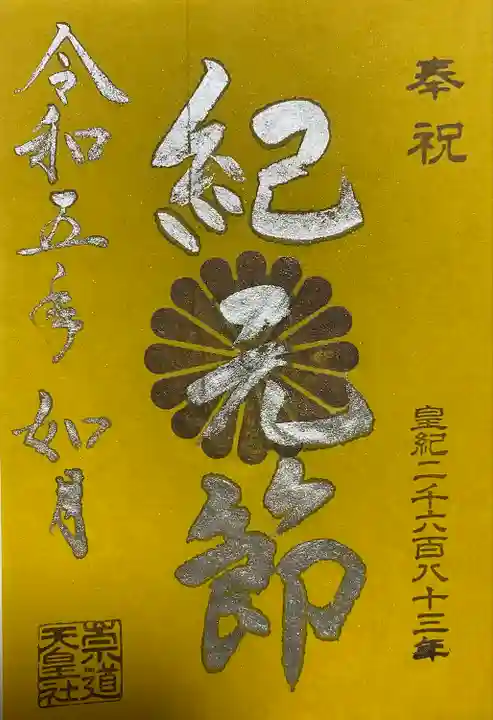 奉祝
皇紀二千六百八十三年
紀元節
令和五年 如月
崇道
天皇社